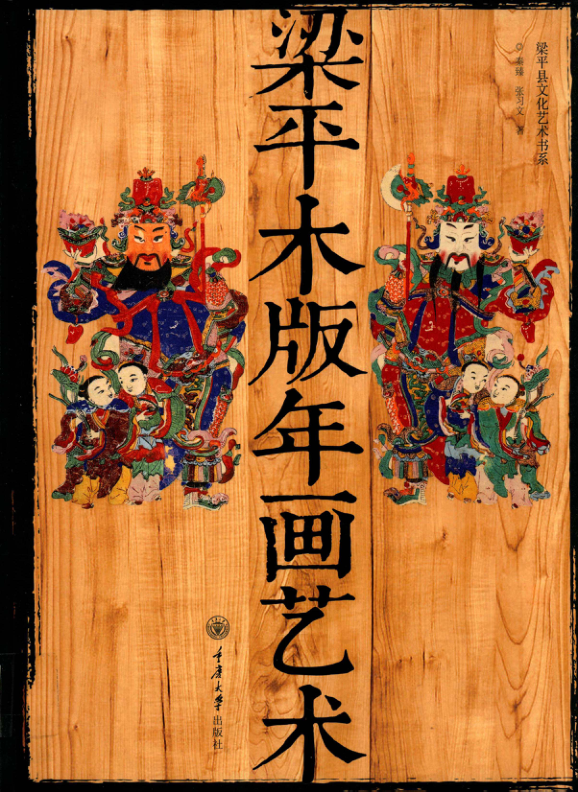 梁平县文化艺术书系
秦臻 张习文 著
梁平木版年画艺术
重庆大学出版社